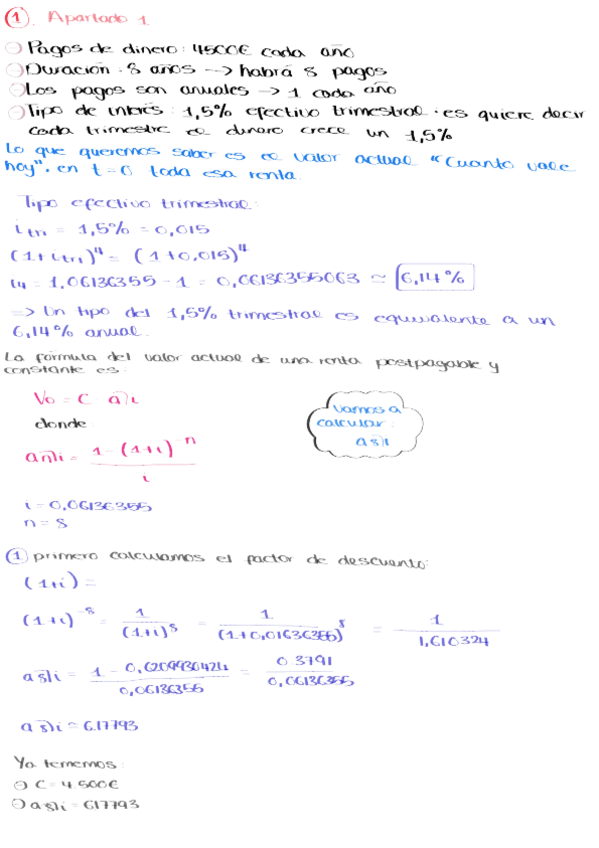 1 Apartado 1
Pagos de dinero: 4500€ cada año
Duración: 8 años --> habrá 8 pagos
Los pagos son anuales -> 1 cada año
Tipo de interés: 1,5% efectivo trimestral · es quiere decir
cada trimestre el dinero crece un 1,5%
Lo que queremos saber es el valor actual "Cuanto vale
hoy". en t=0 toda esa renta.
Tipo efectivo trimestral:
i tri = 1,5% = 0,015
(1+i tri)⁴ = (1+0,015)⁴
i4 = 1,06136355 - 1 = 0,06136355063 ≃ 6,14%
=> Un tipo del 1,5% trimestral es equivalente a un
6,14% anual.
La fórmula del valor actual de una renta postpagable y
constante es:
Vo = C a⌉i
donde
an⌉i = 1 - (1+i)ⁿ / i
vamos a
calcular:
a8⌉i
i = 0,06136355
n = 8
1 primero calculamos el factor de descuento:
(1+i) =
(1+i)⁻⁸ = 1 / (1+i)⁸ = 1 / (1+0,01636355)⁸ = 1 / 1,610324
a8⌉i = 1 - 0,6209930424 / 0,06136355 = 0.3791 / 0,06136355
a8⌉i = 6.17793
Ya tenemos:
C = 4.500€
a8⌉i = 6.17793